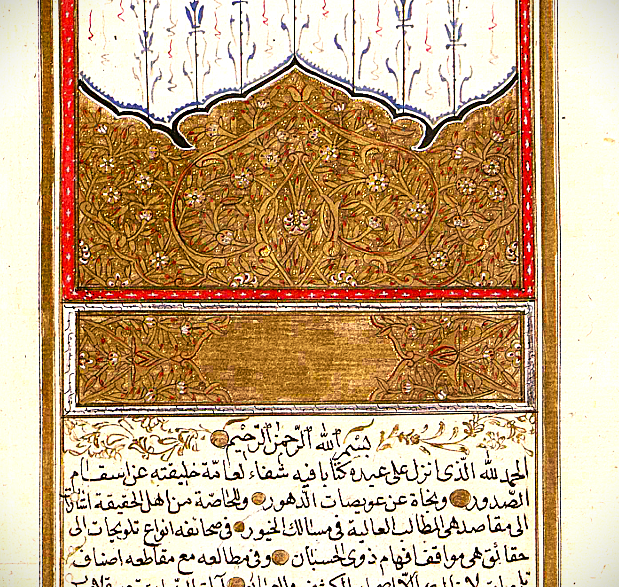 بسم الله الرحمن الرحيم
الحمد لله الذى انزل على عبده كتابا فيه شفاء لعامة خليقته عن اسقام
الصدور ونجاة عن عويصات الدهور وللخاصة من اهل الحقيقة
الى مقاصد هى المطالب العالية فى مسالك الخيور وفى صحائفه انواع تلويحات الى
حقائق هى مواقف افهام ذوى الحسبان وفى مطالعه مع مقاطعه اصناف